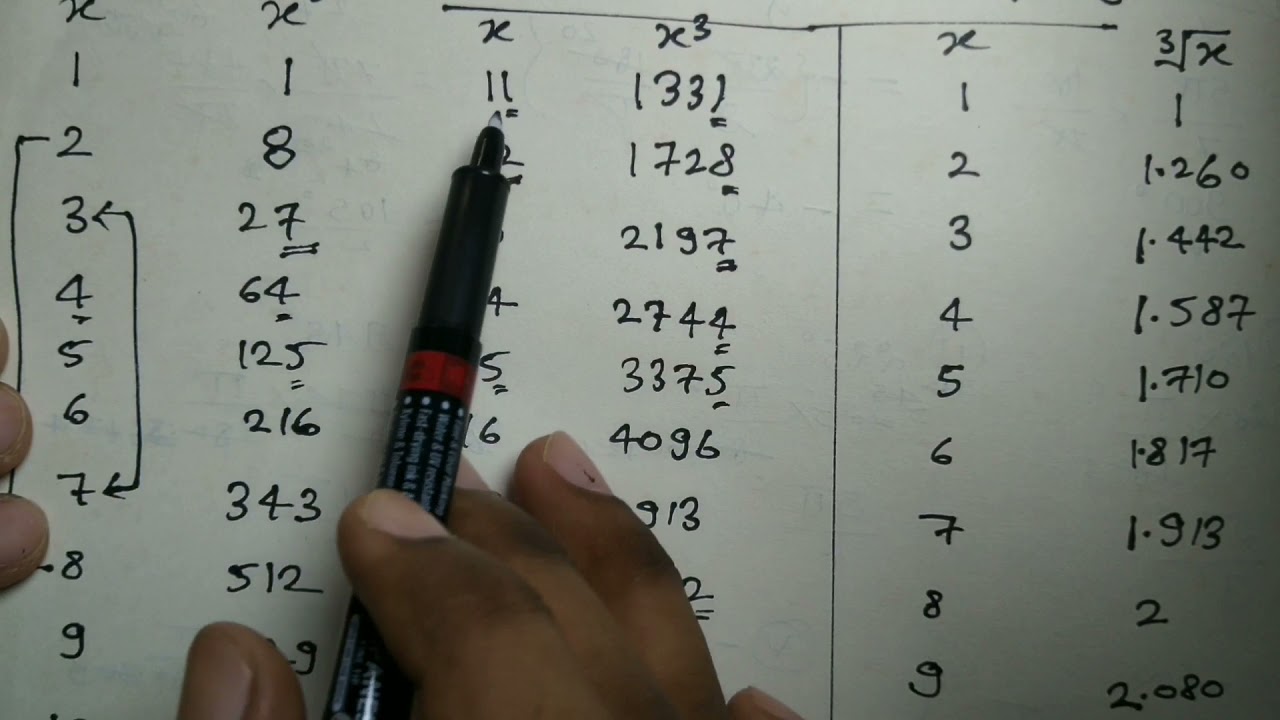 x x x x³ x ³√x
1 1 11 1331 1 1
2 8 2 1728 2 1.260
3 27 2197 3 1.442
4 64 4 2744 4 1.587
5 125 5 3375 5 1.710
6 216 16 4096 6 1.817
7 343 913 7 1.913
8 512 2 8 2
9 9 9 2.080